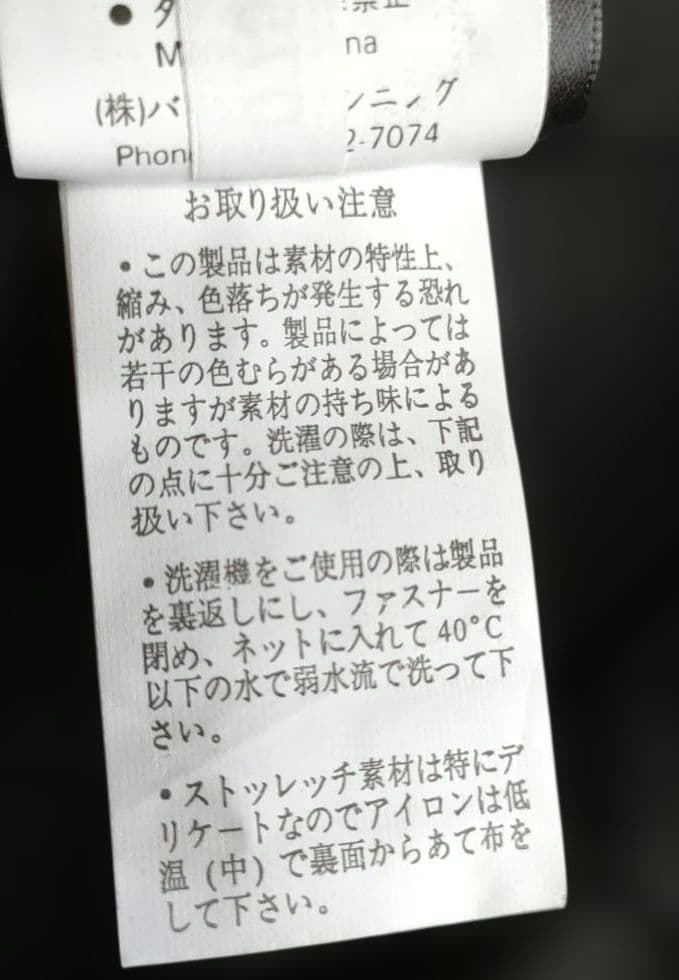 ● タ
禁止
M
na
(株)バ
ニング
Phon
2-7074
お取り扱い注意
•この製品は素材の特性上、
縮み、色落ちが発生する恐れ
があります。製品によっては
若干の色むらがある場合があ
りますが素材の持ち味による
ものです。洗濯の際は、下記
の点に十分ご注意の上、取り
扱い下さい。
•洗濯機をご使用の際は製品
を裏返しにし、ファスナーを
閉め、ネットに入れて40°C
以下の水で弱水流で洗って下
さい。
•ストッレッチ素材は特にデ
リケートなのでアイロンは低
温(中)で裏面からあて布を
して下さい。